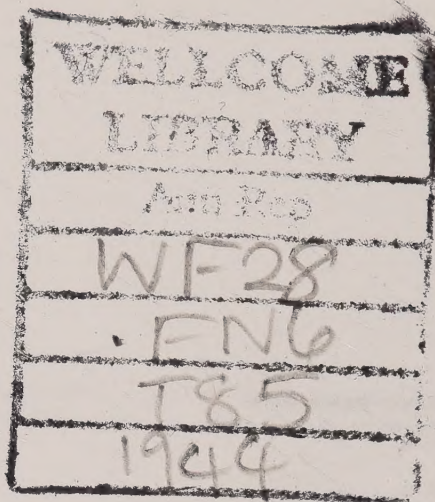 WELLCOME
LIBRARY
Ann Rep
WF28
FN6
T85
1944